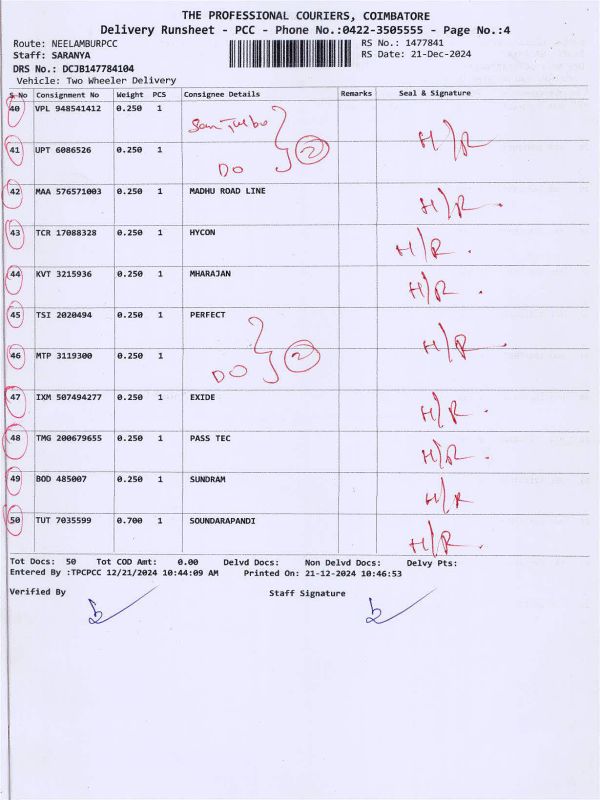 THE PROFESSIONAL COURIERS, COIMBATORE
Delivery Runsheet - PCC - Phone No.:0422-3505555 - Page No.:4
Route: NEELAMBURPCC RS No.: 1477841
Staff: SARANYA RS Date: 21-Dec-2024
DRS No.: DCJB147784104
Vehicle: Two Wheeler Delivery
S No Consignment No Weight PCS Consignee Details Remarks Seal & Signature
40 VPL 948541412 0.250 1
41 UPT 6086526 0.250 1 DO 2 H/R
42 MAA 576571003 0.250 1 MADHU ROAD LINE H/R.
43 TCR 17088328 0.250 1 HYCON H/R.
44 KVT 3215936 0.250 1 MHARAJAN H/R.
45 TSI 2020494 0.250 1 PERFECT H/R
46 MTP 3119300 0.250 1 DO 2
47 IXM 507494277 0.250 1 EXIDE H/R.
48 TMG 200679655 0.250 1 PASS TEC H/R.
49 BOD 485007 0.250 1 SUNDRAM H/R
50 TUT 7035599 0.700 1 SOUNDARAPANDI H/R.
Tot Docs: 50 Tot COD Amt: 0.00 Delvd Docs: Non Delvd Docs: Delvy Pts:
Entered By :TPCPCC 12/21/2024 10:44:09 AM Printed On: 21-12-2024 10:46:53
Verified By Staff Signature